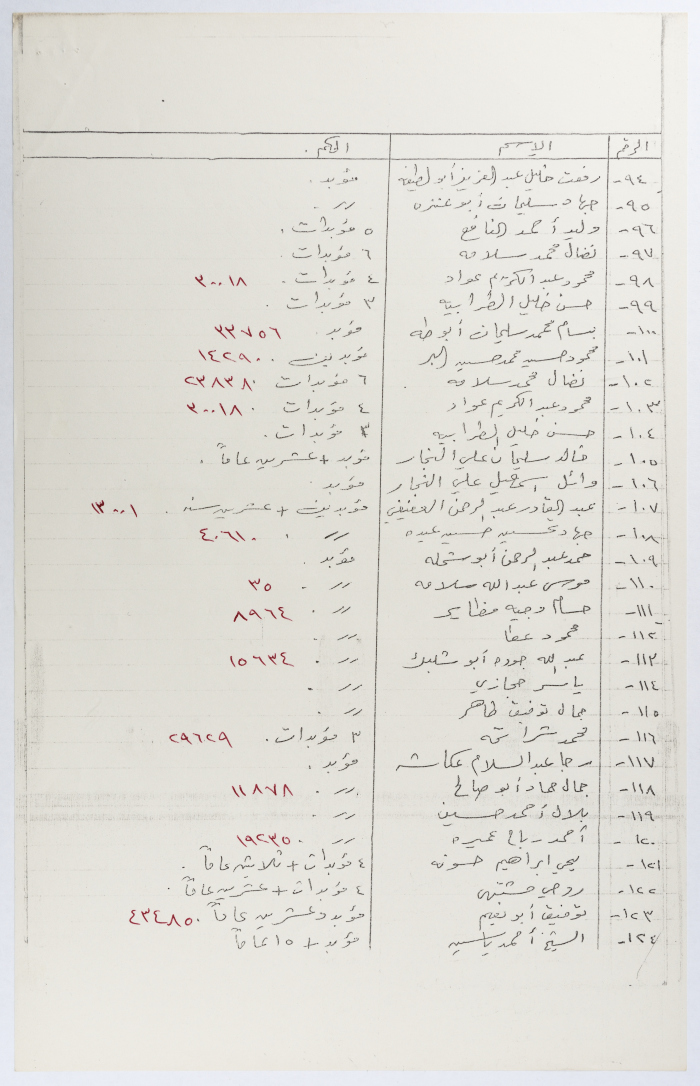 الرقم الاسم الحكم.
٩٤- رفعت خليل عبد العزيز أبو لطيفة مؤبد.
٩٥- جهاد سليمان أبو عنزه رر.
٩٦- وليد أحمد النافع ٥ مؤبدات.
٩٧- نضال محمد سلامه ٦ مؤبدات.
٩٨- محمود عبد الكريم عواد ٤ مؤبدات. ٣٠٠١٨
٩٩- حسن خليل الطرابيه ٣ مؤبدات.
١٠٠- بسام محمد سليمان أبو طه مؤبد. ٣٣٧٥٦
١٠١- محمود حسين محمد حسين البر مؤبدين ١٤٢٩٠٠
١٠٢- نضال محمد سلامه ٦ مؤبدات ٢٣٨٣٨٠
١٠٣- محمود عبد الكريم عواد ٤ مؤبدات ٣٠٠١٨٠
١٠٤- حسن خليل الطرابيه ٣ مؤبدات.
١٠٥- خالد سليمان علي النجار مؤبد + عشرين عاماً.
١٠٦- وائل اسماعيل علي النجار مؤبد.
١٠٧- عبد القادر عبد الرحمن العفيفي مؤبدين + عشرين سنه. ١٣٠٠١
١٠٨- جهاد تحسين حسين عبيده رر. ٤٠٦١٠
١٠٩- حمد عبد الرحمن أبو شحله مؤبد.
١١٠- موسى عبد الله سلامه رر. ٣٥
١١١- حسام وجيه مظاير رر. ٨٩٦٤
١١٢- محمود عطا رر.
١١٣- عبد الله جوده أبو شلبك رر. ١٥٦٣٤
١١٤- ياسر حجازي رر.
١١٥- جمال توفيق طاهر رر.
١١٦- محمد شراتحه ٣ مؤبدات. ٢٩٦٢٩
١١٧- رجا عبد السلام عكاشه مؤبد.
١١٨- جمال حماد أبو صالح رر. ١١٨٧٨
١١٩- بلال أحمد حسين رر.
١٢٠- أحمد رباح عميره رر ١٩٢٣٥٠
١٢١- يحي ابراهيم حسونه ٤ مؤبدات + ثلاثين عاماً.
١٢٢- روحي مشتهى ٤ مؤبدات + عشرين عاماً.
١٢٣- توفيق أبو نعيم مؤبد وعشرين عاماً ٤٣٤٨٥٠
١٢٤- الشيخ أحمد ياسين مؤبد + ١٥ عاماً